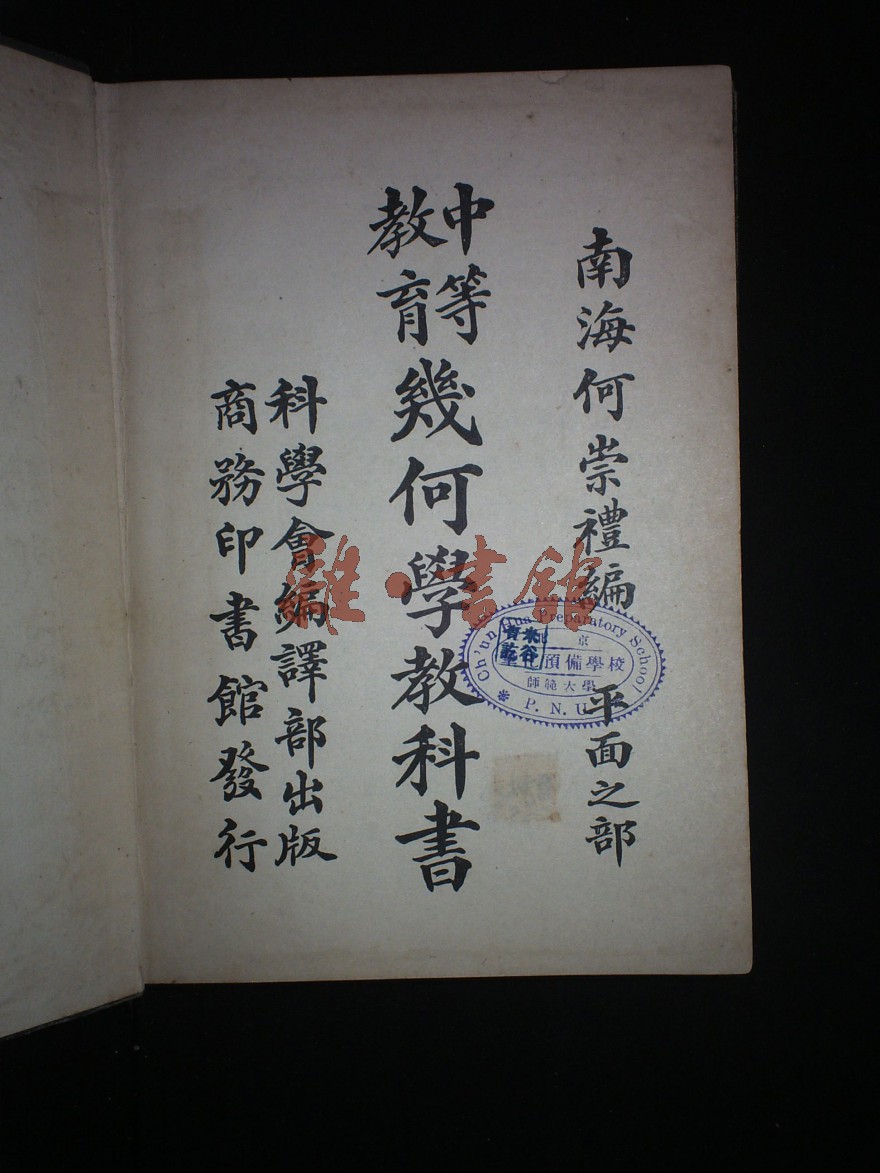 南海何崇禮編
平面之部
中等教育幾何學教科書
科學會編譯部出版
商務印書館發行
Ch'ung Hua Preparatory School
京
預備學校
師範大學
P. N. U.
雒·書館